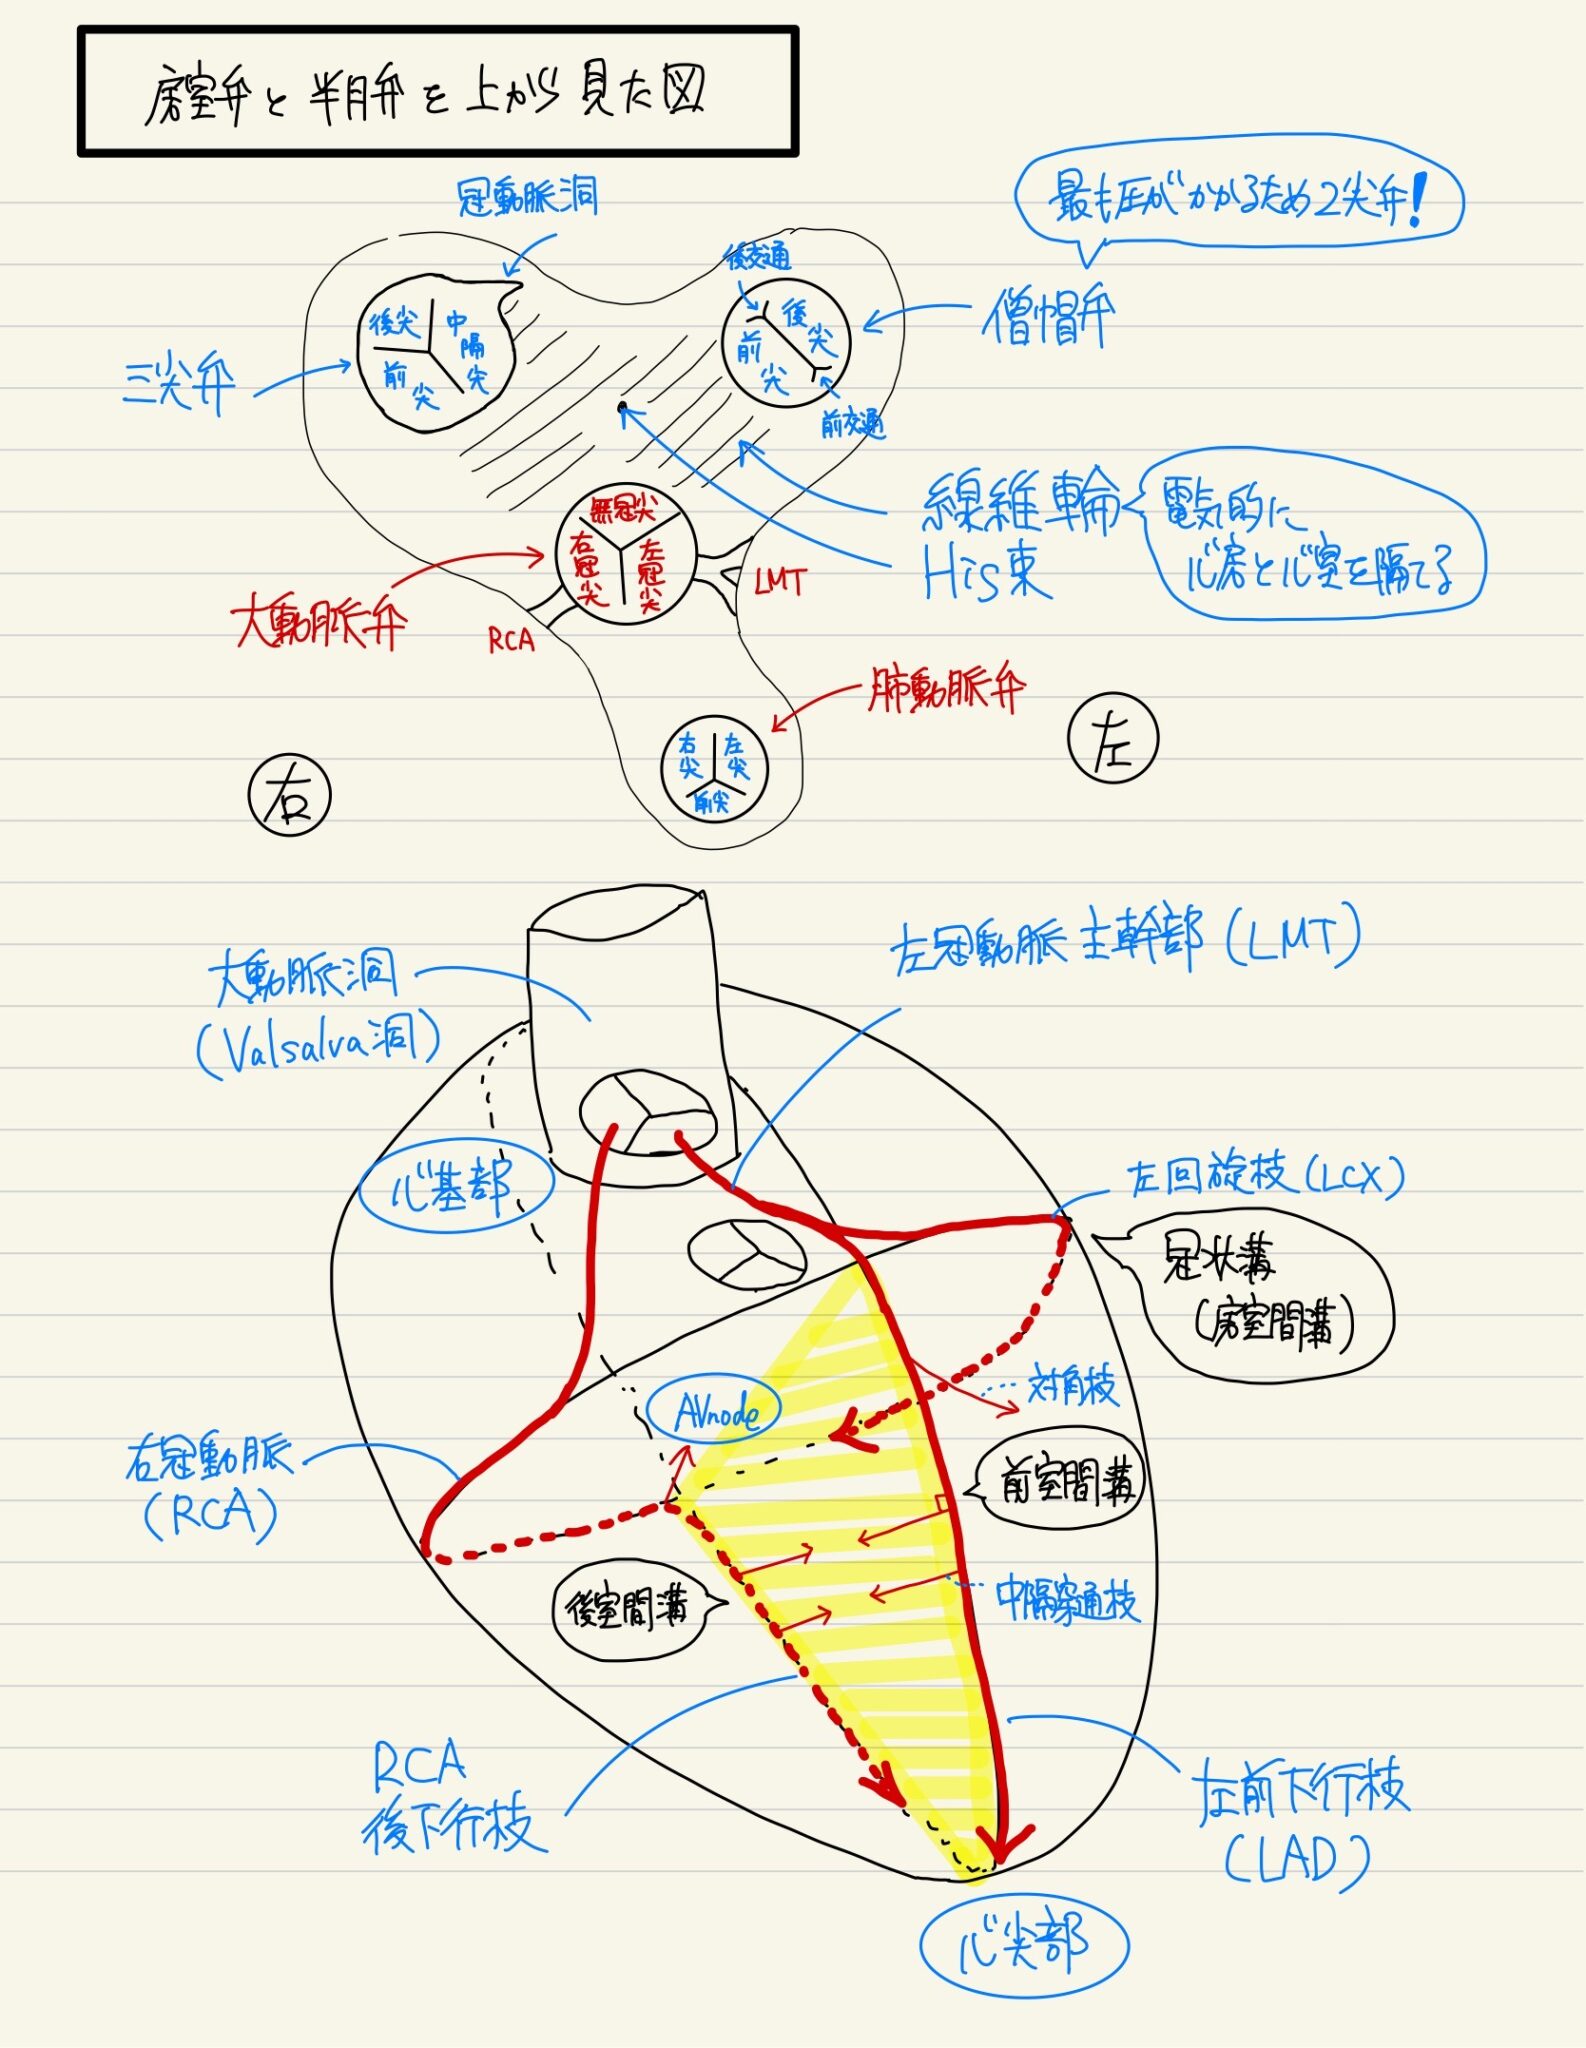 房室弁と半月弁を上から見た図
冠動脈洞
最も圧がかかるため2尖弁!
後交通
僧帽弁
後尖
中隔尖
前尖
三尖弁
後尖
前尖
前交通
線維輪
電気的に
心房と心室を隔てる
His束
無冠尖
右冠尖
左冠尖
LMT
大動脈弁
RCA
肺動脈弁
右尖
左尖
前尖
右
左
左冠動脈主幹部(LMT)
大動脈洞
(Valsalva洞)
心基部
左回旋枝(LCX)
冠状溝
(房室間溝)
AVnode
対角枝
右冠動脈
(RCA)
前室間溝
後室間溝
中隔穿通枝
RCA
後下行枝
左前下行枝
(LAD)
心尖部